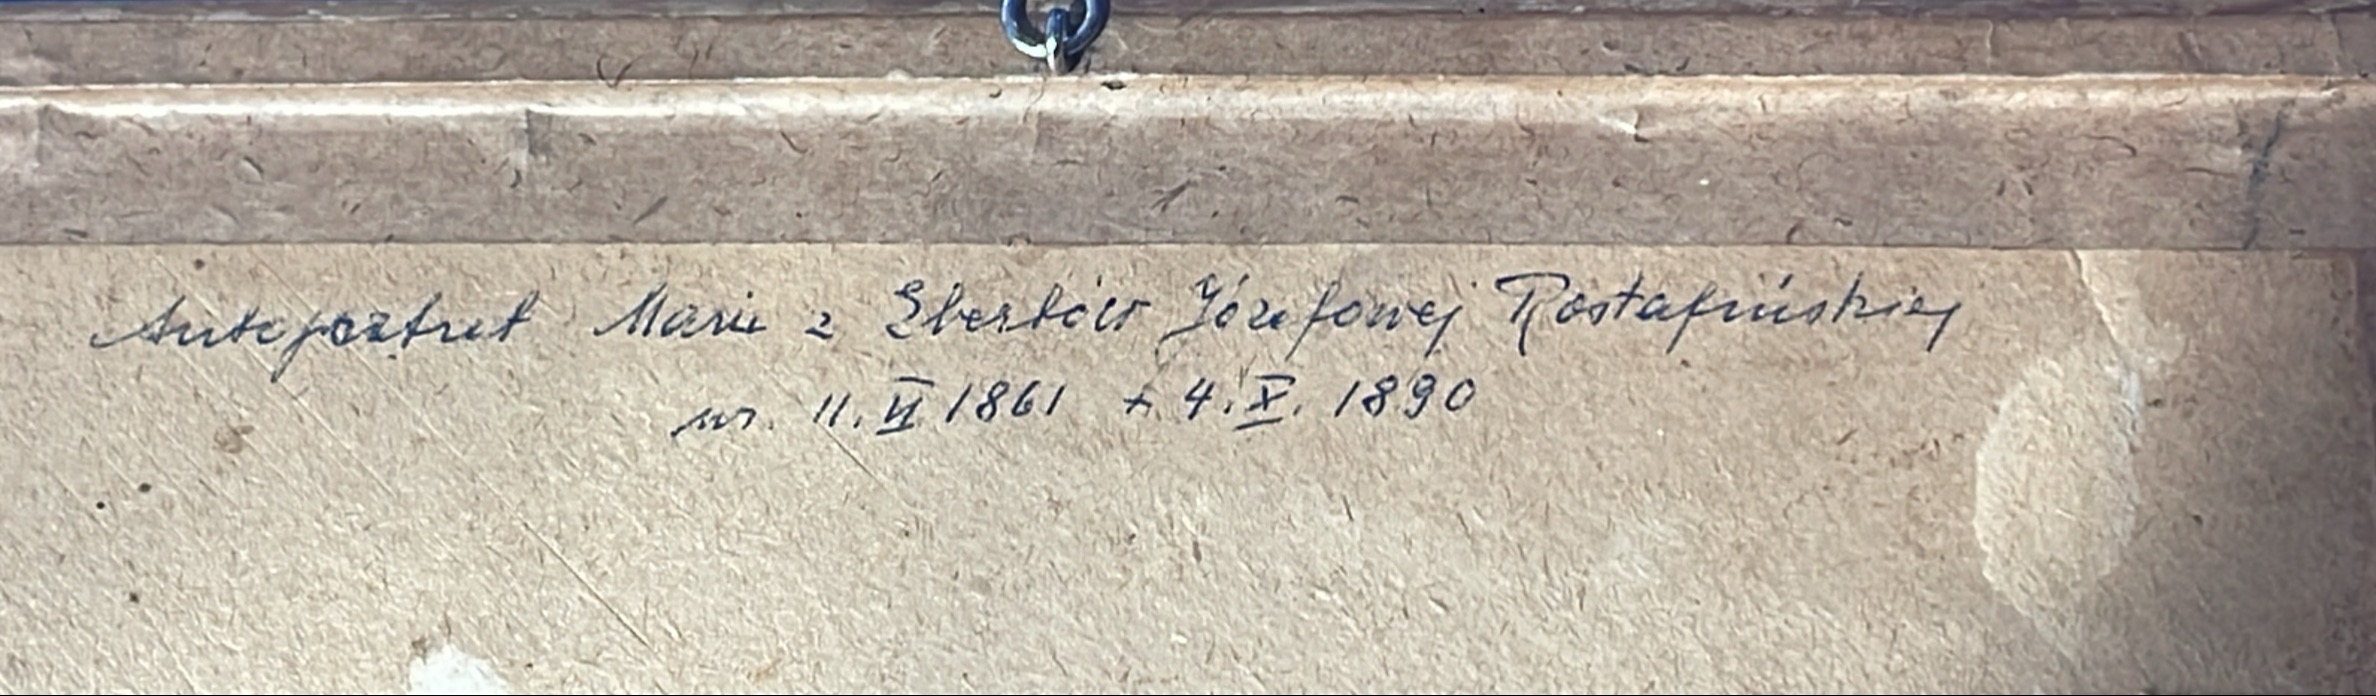 Autoportret Marii z Ebertów Józefowej Rostafińskiej
ur. 11. VI 1861 + 4. X. 1890